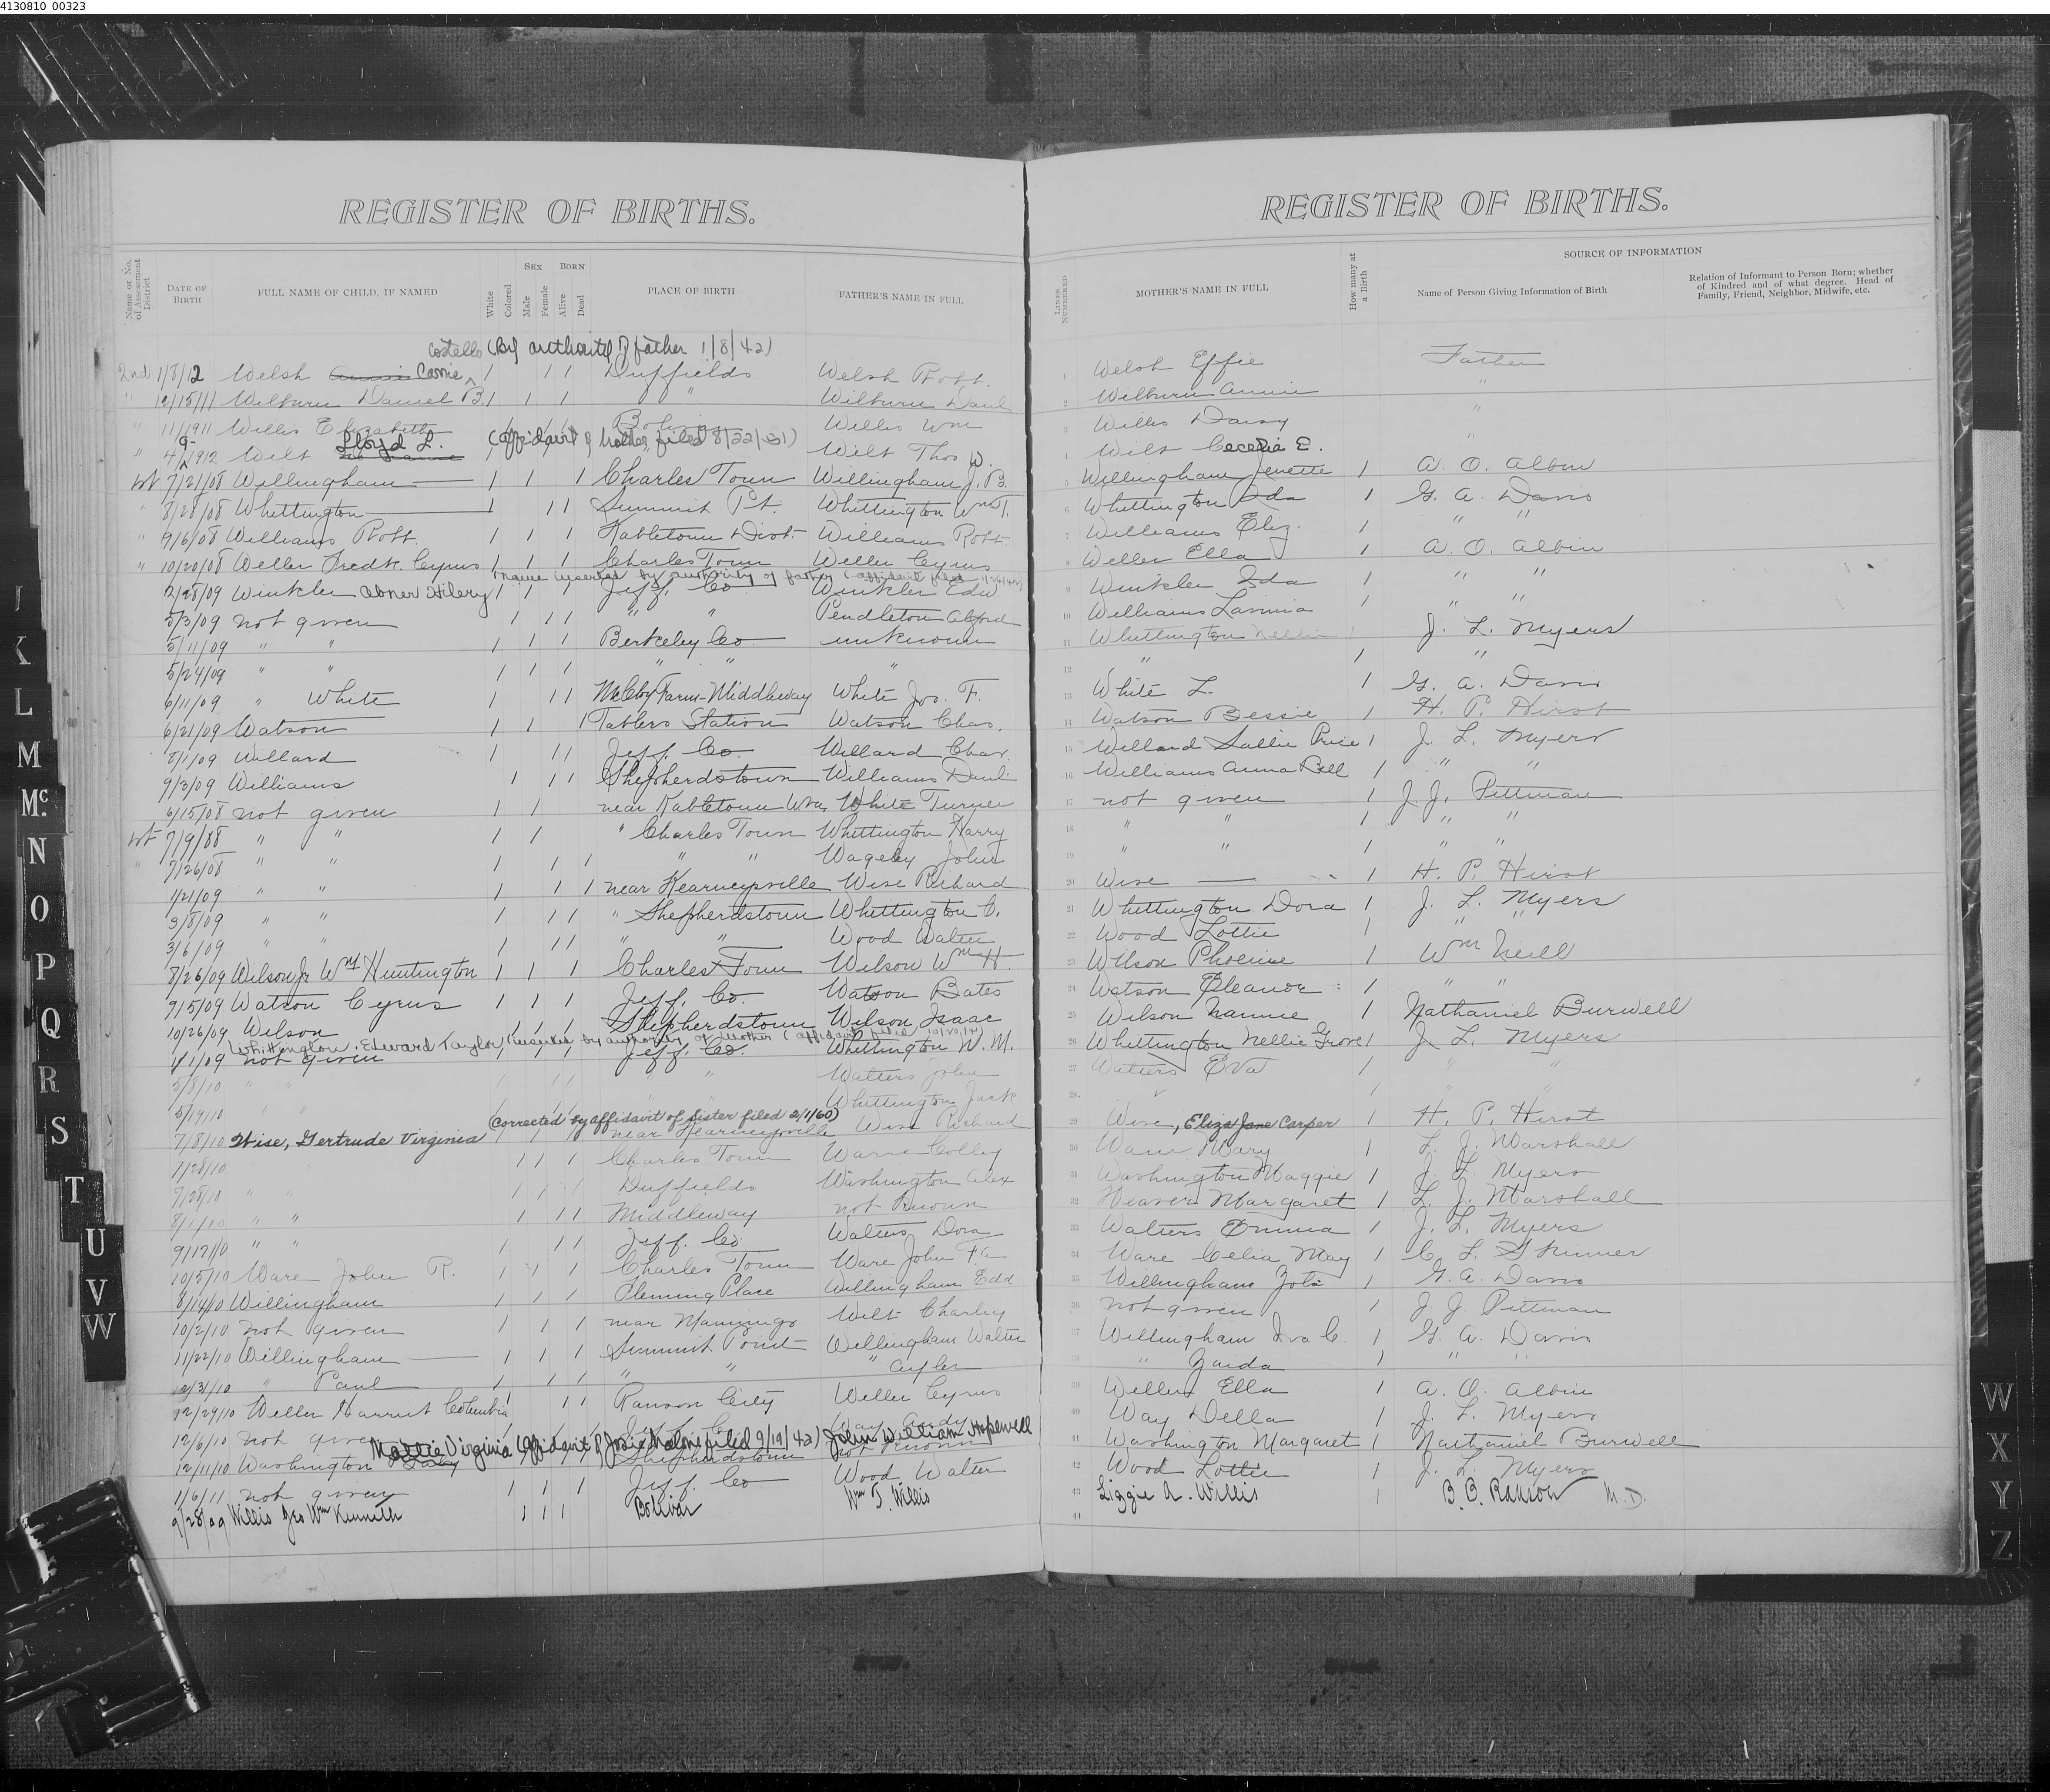 4130810_00323
REGISTER OF BIRTHS.
Name or No. of Assessment District
DATE OF BIRTH
FULL NAME OF CHILD, IF NAMED
White
Colored
SEX
Male
Female
BORN
Alive
Dead
PLACE OF BIRTH
FATHER'S NAME IN FULL
Costello (By authority of father 1/8/42)
2nd 1/8/12 Welsh Carrie 1 1 1 Duffields Welsh Robt.
" 12/15/11 Wilburn Daniel B. 1 1 1 " Wilburn Danl
" 11/1911 Willis Elizabeth Willis Wm
Lloyd L. (affidavit of mother filed 8/22/51)
" 4/9/1912 Wilt Wilt Thos W.
7/21/08 Willingham 1 1 1 Charles Town Willingham J. B.
" 8/28/08 Whittington 1 1 1 Summit Pt. Whittington Wm T.
" 9/6/08 Williams Robt. 1 1 1 Kabletown Dist. Williams Robt.
" 10/20/08 Weller Fredk. Cyrus 1 1 1 Charles Town Weller Cyrus
(name inserted by authority of father (affidavit filed
2/28/09 Winkler Abner Hilery 1 1 1 Jeff. Co. Winkler Edw
5/3/09 not given 1 1 1 " " Pendleton Alford
5/11/09 " " 1 1 1 Berkeley Co. unknown
5/24/09 " " 1 1 1 " " "
6/11/09 " White 1 1 1 McCloy Farm-Middleway White Jos. F.
6/21/09 Watson 1 1 1 Tablers Station Watson Chas.
8/1/09 Willard 1 1 1 Jeff. Co. Willard Chas.
9/3/09 Williams 1 1 1 Shepherdstown Williams Danl.
6/15/08 not given 1 1 near Kabletown Wva. White Turner
7/9/88 " " 1 1 " Charles Town Whittington Harry
" 7/26/08 " " 1 1 1 " " Wageley John
1/21/09 " " 1 1 1 near Kearneysville Wise Richard
3/8/09 " " 1 1 1 " Shepherdstown Whittington C.
3/6/09 " " 1 1 1 " " Wood Walter
8/26/09 Wilson Jr Wm Huntington 1 1 1 Charles Town Wilson Wm H.
9/15/09 Watson Cyrus 1 1 1 Jeff. Co. Watson Bates
10/26/09 Wilson 1 1 1 Shepherdstown Wilson Isaac
Whittington, Edward Taylor (inserted by authority of mother (affidavit filed
1/1/09 not given 1 1 1 Jeff. Co. Whittington W. M.
5/8/10 " " 1 1 1 " " Watters John
5/19/10 " " " " Whittington Jack
(Corrected by affidavit of sister filed 2/1/60)
7/8/10 Wise, Gertrude Virginia 1 1 1 near Kearneysville Wise Richard
7/28/10 1 1 1 Charles Town Colley
7/28/10 " " 1 1 1 Duffields Washington Alex
8/1/10 " " 1 1 1 Middleway not known
9/17/10 " " 1 1 1 Jeff. Co. Walters Dora
10/5/10 Ware John R. 1 1 1 Charles Town Ware John
8/14/10 Willingham 1 1 1 Fleming Place Willingham Edd
10/2/10 not given 1 1 1 near Wilt Charley
11/22/10 Willingham 1 1 1 Summit Point Willingham Walter
12/31/10 " Paul 1 1 1 " " " Cuyler
12/29/10 Weller Harriet Columbia 1 1 1 Ranson City Weller Cyrus
12/6/10 not given Jeff. Co. Way
Mattie Virginia (affidavit of Josie Malone filed 9/19/42) John William Hopewell
12/11/10 Washington Baby Shepherdstown not known
1/6/11 not given 1 1 1 Jeff. Co. Wood Walter
9/28/09 Willis Geo Wm Kenneth 1 1 1 Bolivar Wm T. Willis
REGISTER OF BIRTHS.
LINES NUMBERED
MOTHER'S NAME IN FULL
How many at a Birth
SOURCE OF INFORMATION
Name of Person Giving Information of Birth
Relation of Informant to Person Born; whether of Kindred and of what degree. Head of Family, Friend, Neighbor, Midwife, etc.
1 Welsh Effie Father
2 Wilburn Annie "
3 Willis Daisy "
4 Wilt Cecelia E. "
5 Willingham Jenette 1 A. O. Albin
6 Whittington Ida 1 G. A. Davis
7 Williams Eliz. 1 " "
8 Weller Ella 1 A. O. Albin
9 Winkler Ida 1 " "
10 Williams Lavinia 1 " "
11 Whittington Nellie 1 J. L. Myers
12 " 1 "
13 White L. 1 G. A. Davis
14 Watson Bessie 1 H. P. Hirst
15 Willard Sallie Price 1 J. L. Myers
16 Williams Anna Bell 1 " "
17 not given 1 J. J. Pittman
18 " " 1 " "
19 " " 1 " "
20 Wise 1 H. P. Hirst
21 Whittington Dora 1 J. L. Myers
22 Wood Lottie 1 " "
23 Wilson Phoenie 1 Wm Neill
24 Watson Eleanor 1 " "
25 Wilson Nannie 1 Nathaniel Burwell
26 Whittington Nellie Grove 1 J. L. Myers
27 Watters Eva 1 " "
28 " "
29 Wise, Eliza Jane Carper 1 H. P. Hirst
30 Mary 1 L. J. Marshall
31 Washington Maggie 1 J. L. Myers
32 Weaver Margaret 1 L. J. Marshall
33 Walters Emma 1 J. L. Myers
34 Ware Celia May 1 C. L. Skinner
35 Willingham 1 G. A. Davis
36 not given 1 J. J. Pittman
37 Willingham Iva C. 1 G. A. Davis
38 " Zaida 1 " "
39 Weller Ella 1 A. O. Albin
40 Way Della 1 J. L. Myers
41 Washington Margaret 1 Nathaniel Burwell
42 Wood Lottie 1 J. L. Myers
43 Lizzie A. Willis 1 B. B. Ranson M.D.
44
J
K
L
M
Mc
N
O
P
Q
R
S
T
U
V
W
W
X
Y
Z